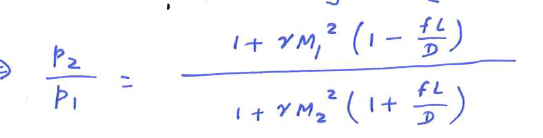 ⇒ p₂/p₁ = (1 + γM₁² (1 − fL/D)) / (1 + γM₂² (1 + fL/D))